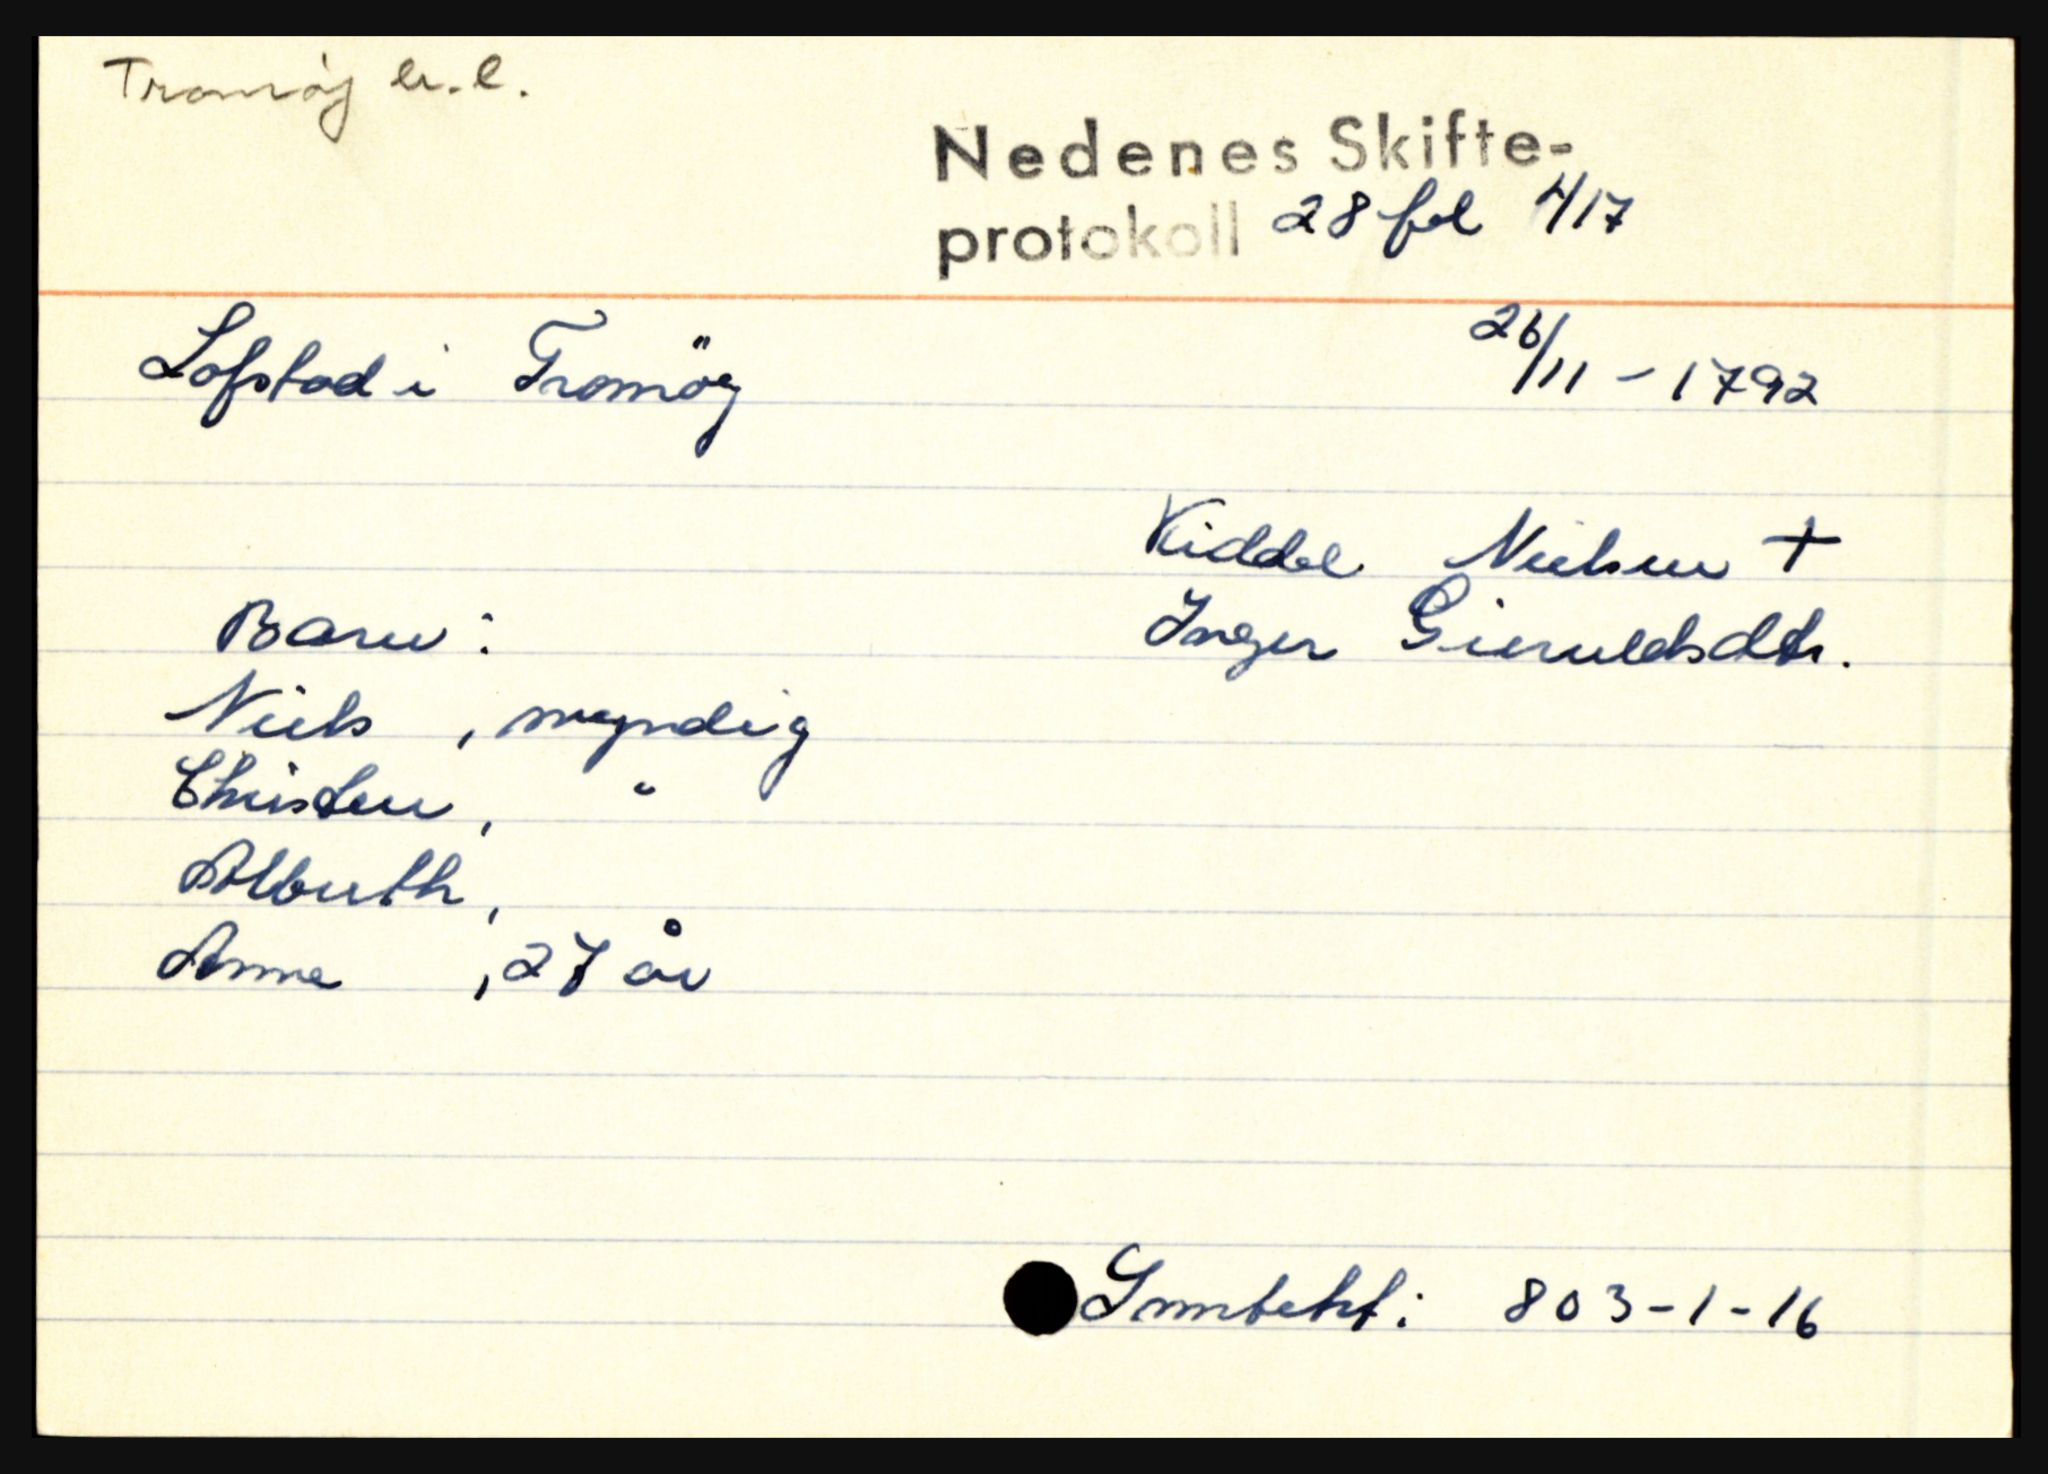 Tromöj l.l.
Nedenes Skifte-
protokoll 28 fol 417
Lofstad i Tromöy 26/11 - 1792
Kiddel Nielsen +
Inger Gieruldsdtr.
Barn:
Niels , myndig
Christen , "
Alberth ,
Anne , 27 år
Inntekt: 803-1-16